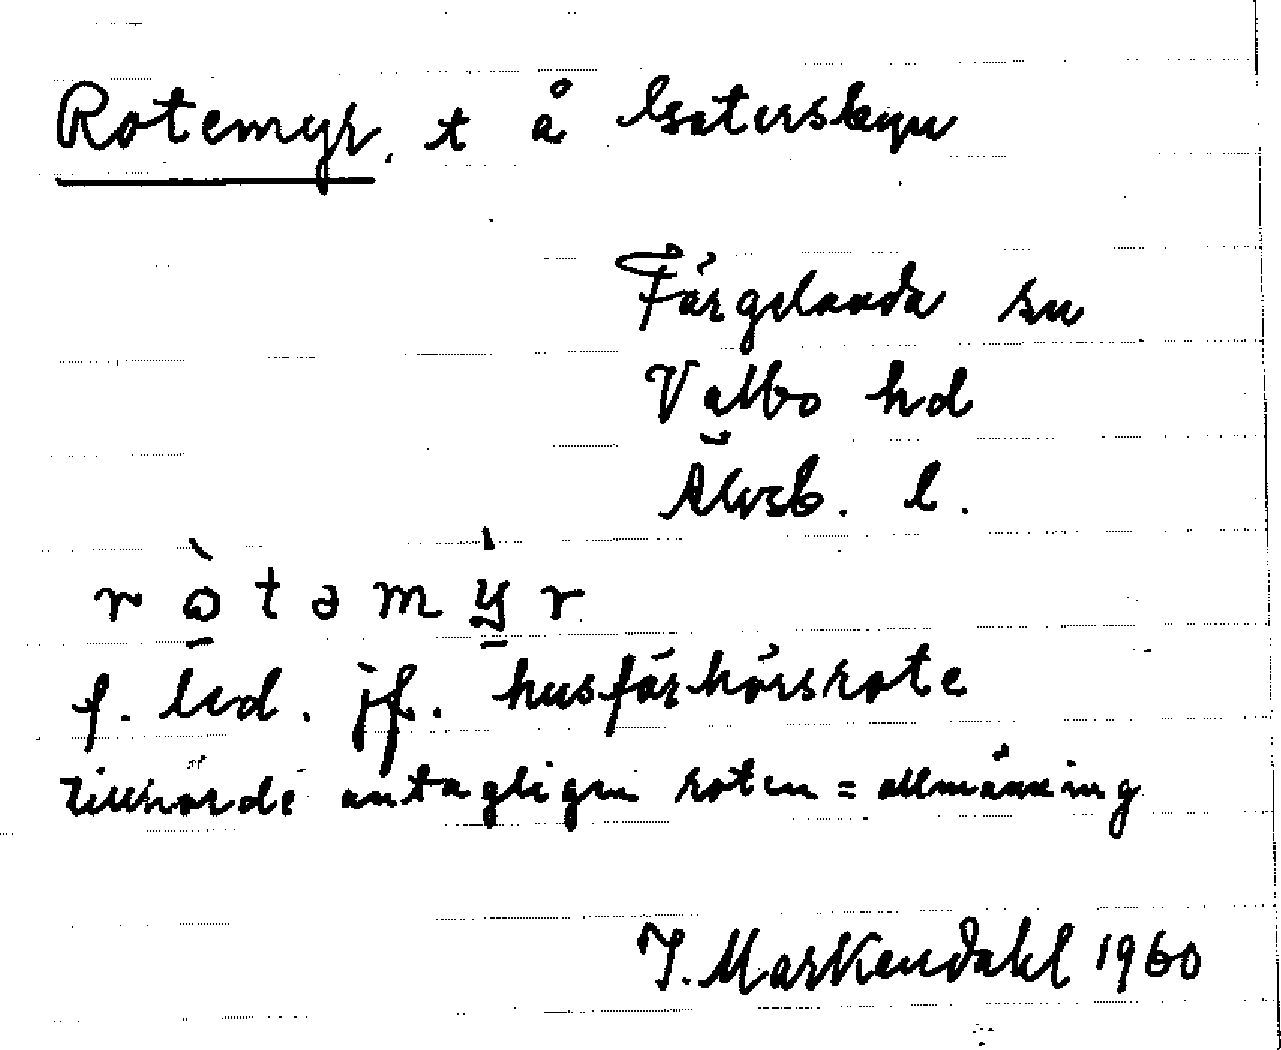 Rotemyr, t å
Färgelanda sn
Valbo hd
Älvsb. l.
ròtəmẏr
f. led. jf. husförhörsrote
tillhörde antagligen roten = allmänning
J. Markendahl 1960